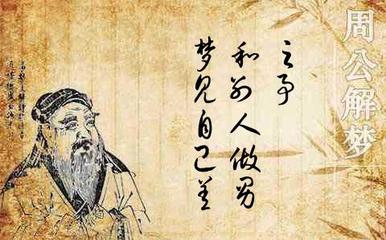 周公解梦
梦见自己
和别人做男
之事